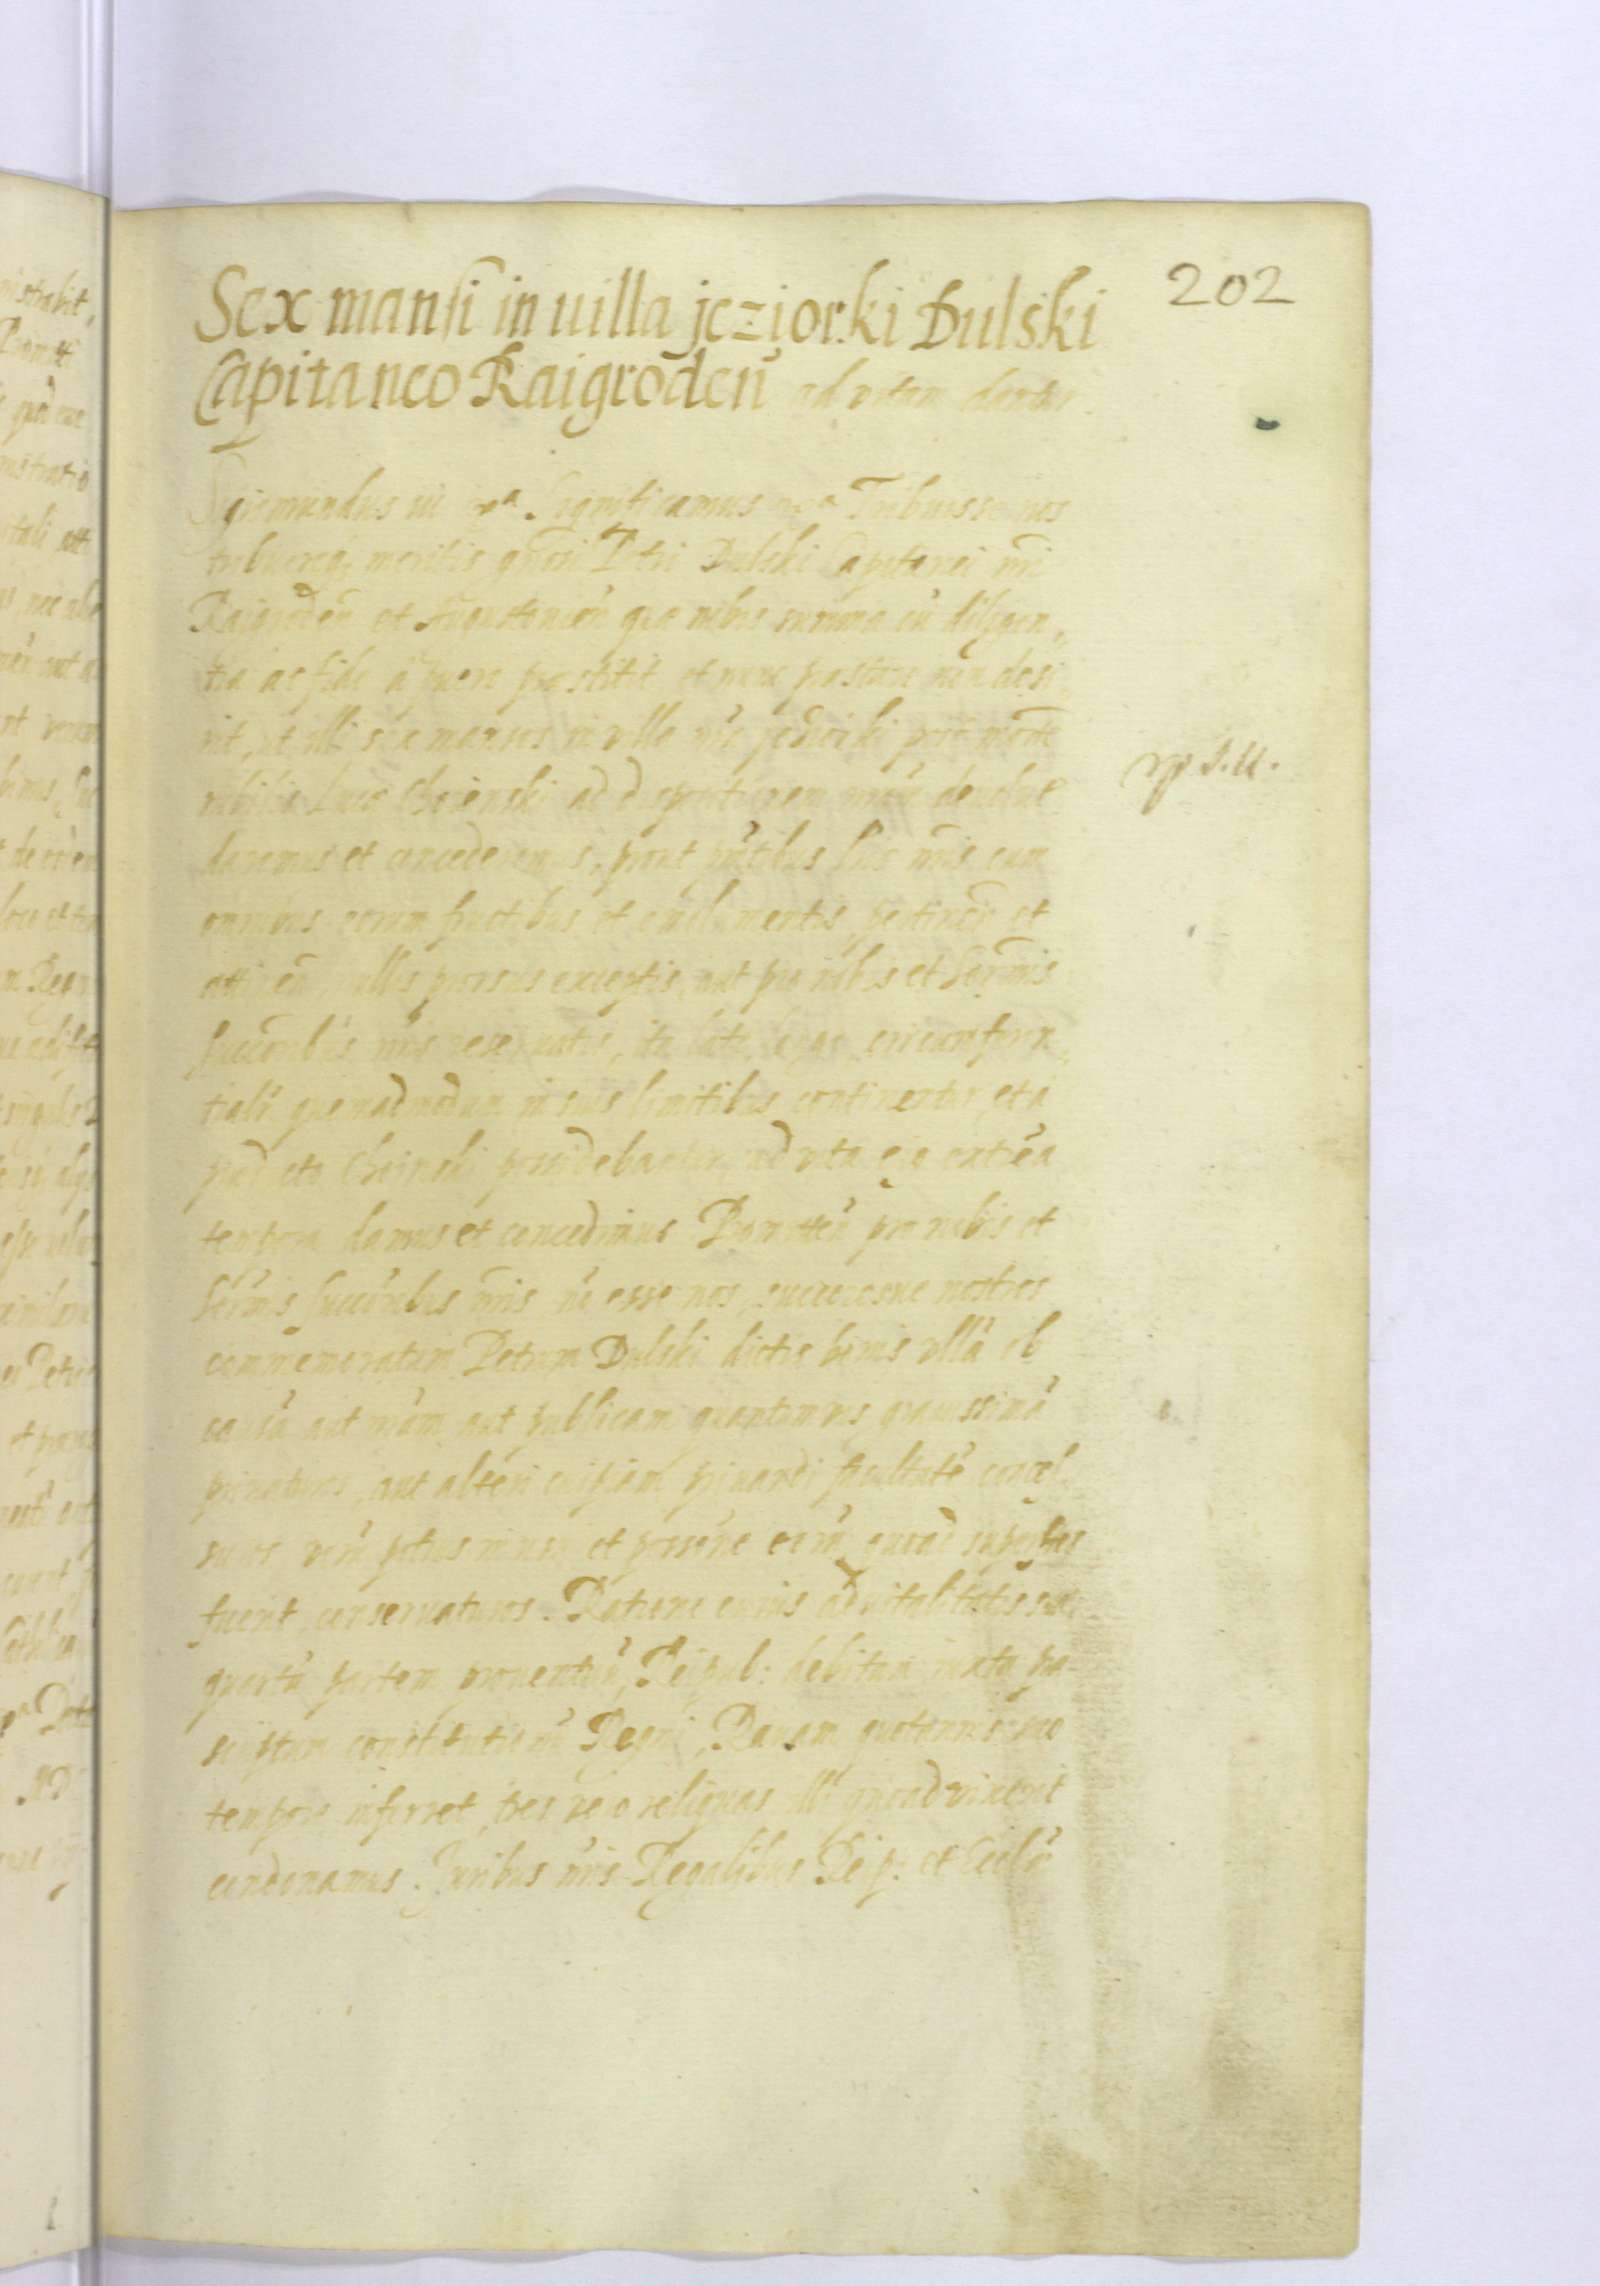 202
Sex mansi in uilla jeziorki Dulski
Capitaneo Raigrodeñ ad vitam dantur
Sigismundus iii &ca. Significamus &ca Tribuisse nos
meritis gñosi Petri Dulski Capitanei nri
Rajgrodeñ et Augustouieñ quae nobis summa cũ diligen„
tia ac fide a puero praestitit et nunc praestare non desi
nit, ut illi sex mansos in villa nrã jeziorki post mortẽ
nobilis Luce Choienski ad dispositionem nrãm deuolut
daremus et concederemus, prout pñtibus lris nris cum
omnibus eorum fructibus et emolumentis, pertineñ et
attineñ, nullis prorsus exceptis, aut pro nobis et Sermis
Succoribus nris reseruatis, ita late, longe, circumferen„
tialr̃ quemadmodum in suis limitibus continentur et a
prãdcto Choienski possidebantur, ad vitae eius extrẽa
tempora damus et concedimus. Promitteñ pro nobis et
Sermis succoribus nris nõ esse nos, successoresue nostros
commemoratum Petrum Dulski dictis bonis ullã ob
causã aut nrãm aut publicam quantumuis grauissimã
priuaturos, aut alteri cuipiam priuandi facultatẽ conces
suros, verũ potius in usu et possẽne eorũ quoad superstes
fuerit conseruaturos. Ratione cuius aduitalitatis suae
quartã partem prouentuũ, Reipub: debitam iuxta prae
scriptum constitutionũ Regni, Rauam quotannis suo
tempore inferret, tres vero reliquas illi quoad vixerit
condonamus. Juribus nris Regalibus Reip: et Ecclĩe